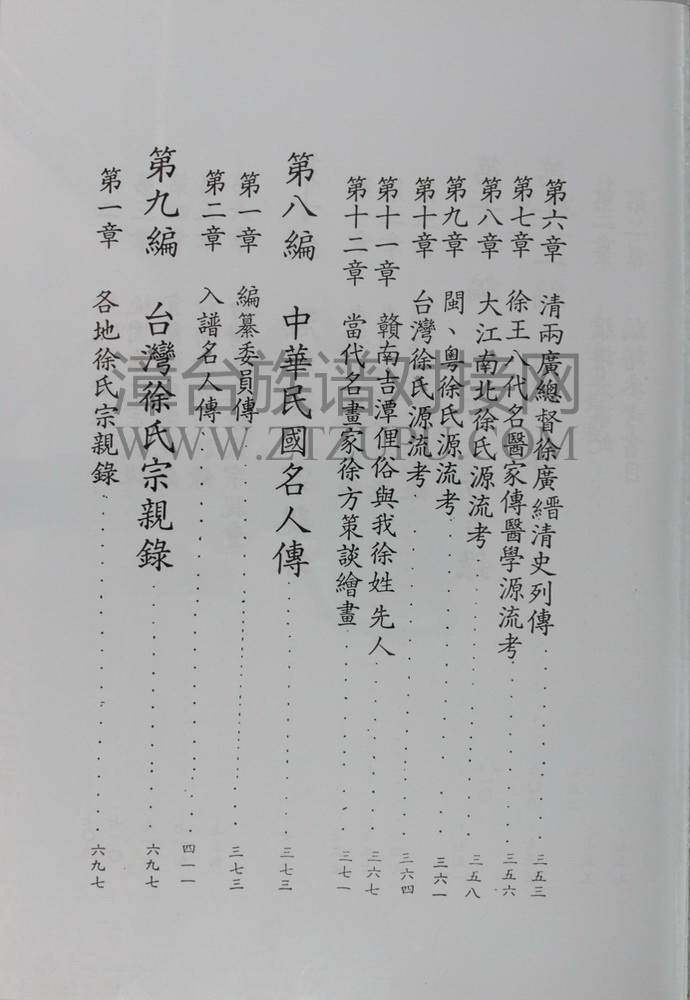 第六章 清兩廣總督徐廣縉清史列傳 三五三
第七章 徐王八代名醫家傳醫學源流考 三五六
第八章 大江南北徐氏源流考 三五八
第九章 閩、粵徐氏源流考 三六一
第十章 台灣徐氏源流考 三六四
第十一章 贛南吉潭俚俗與我徐姓先人 三六七
第十二章 當代名畫家徐方策談繪畫 三七一
第八編 中華民國名人傳 三七三
第一章 編纂委員傳 三七三
第二章 入譜名人傳 四一一
第九編 台灣徐氏宗親錄 六九七
第一章 各地徐氏宗親錄 六九七
漳台族谱对接网
WWW.ZTZUPU.COM